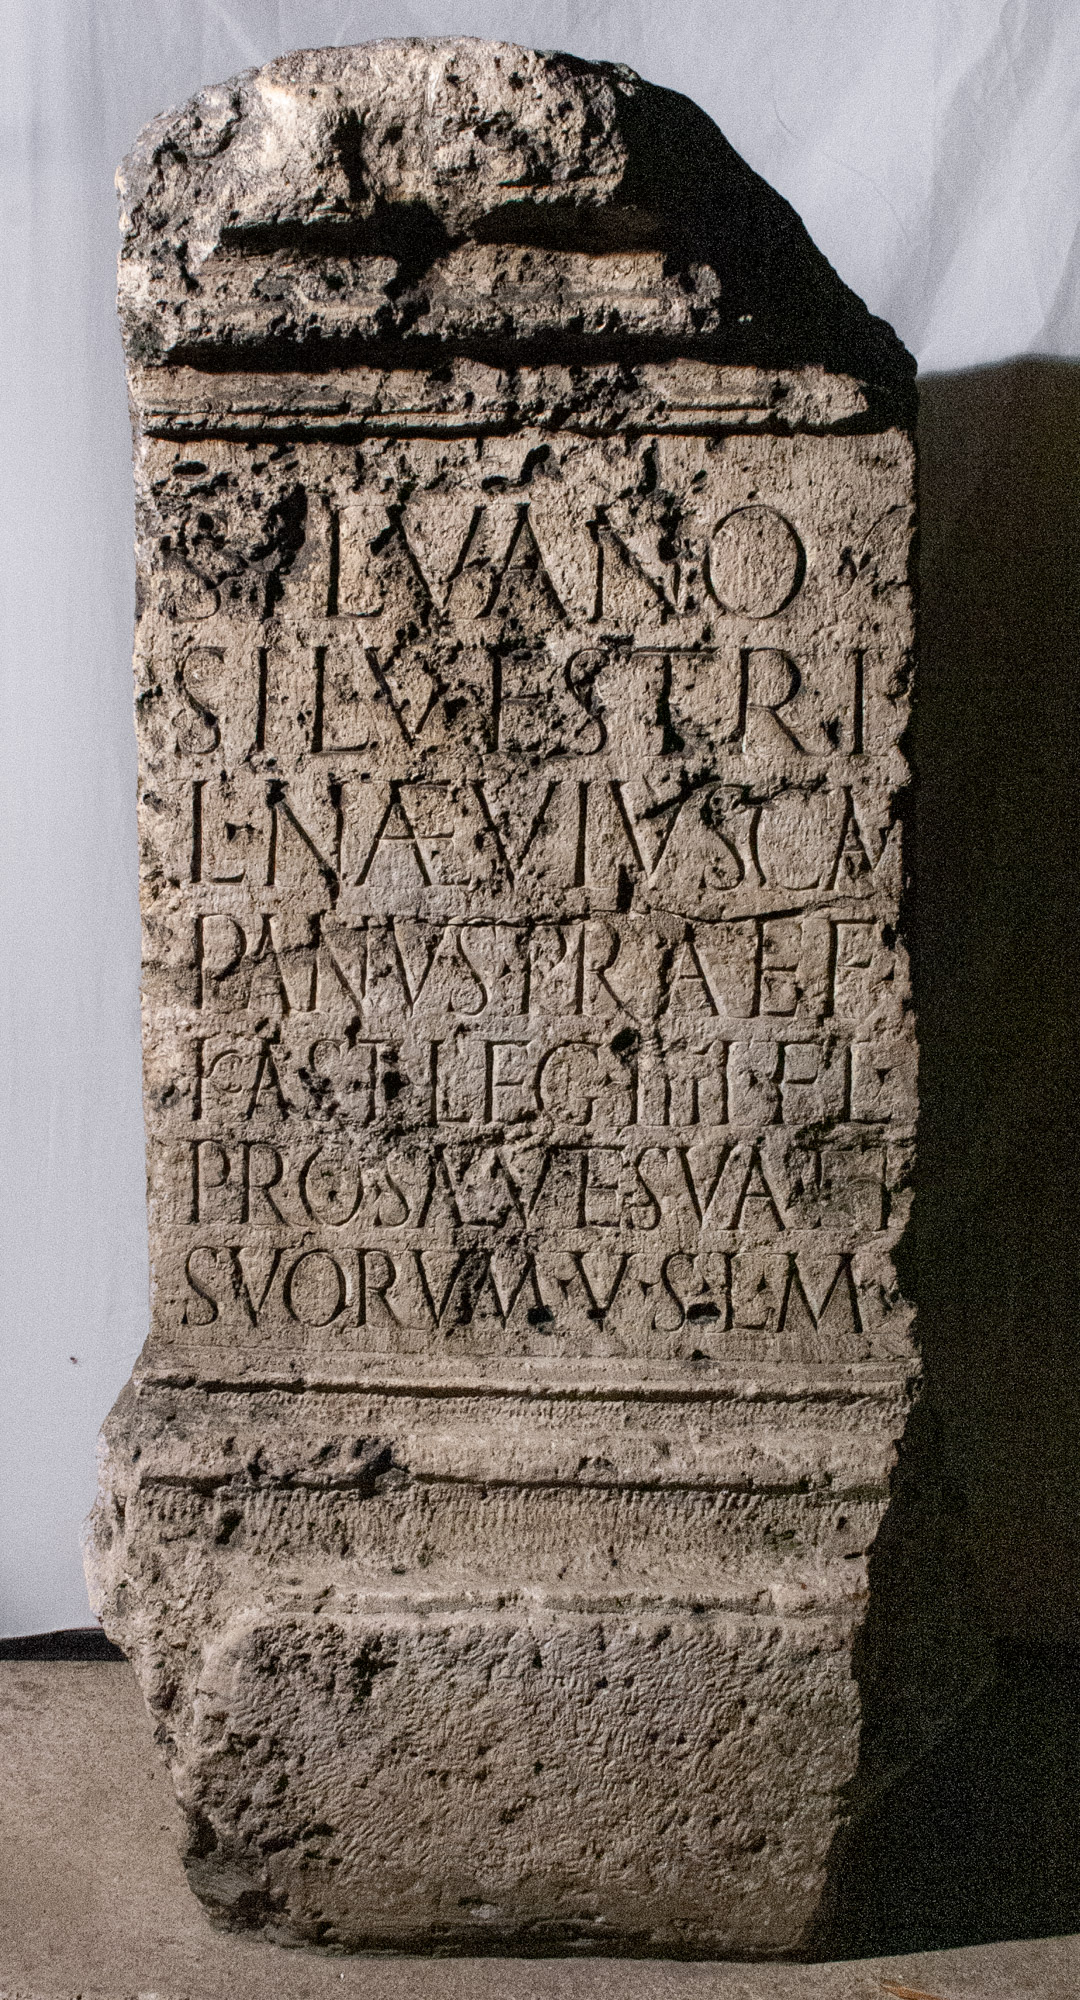 SILVANO
SILVESTRI
L·NAEVIVS CA
PANVS PRAEF
KAST LEG IIII FL
PRO SALVTE SVA ET
SVORVM·V·S·L·M